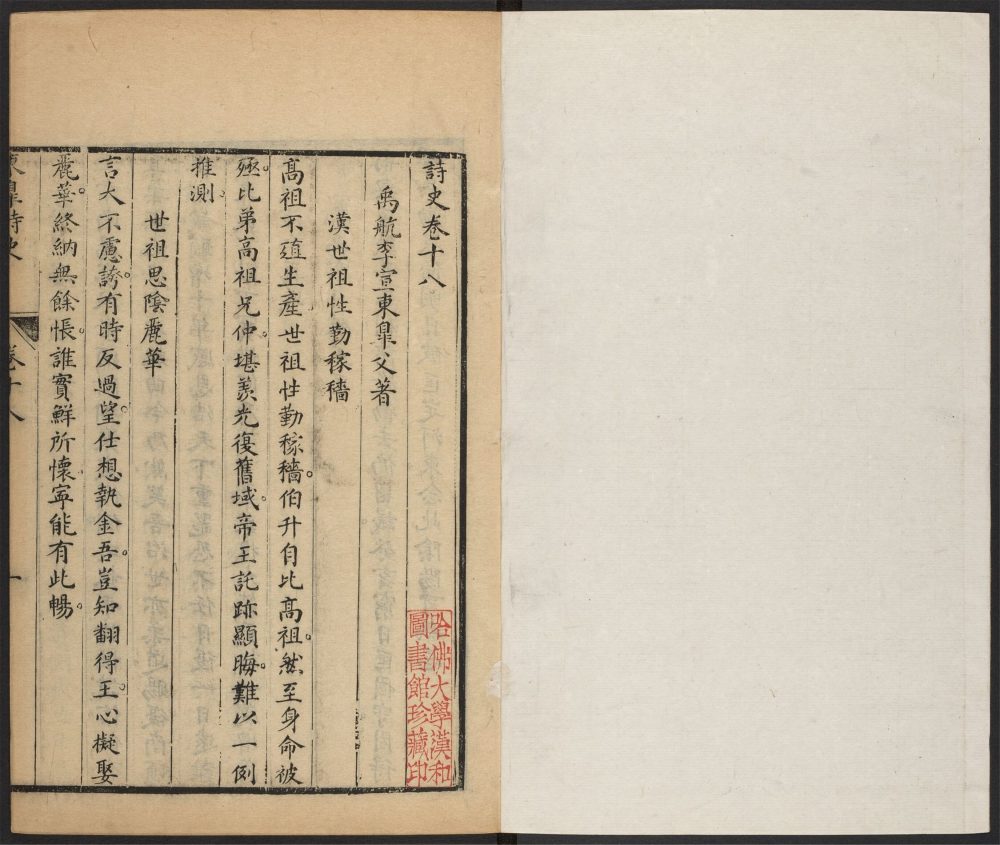 詩史卷十八
禹航李宣東臯父著
漢世祖性勤稼穡
高祖不殖生產世祖性勤稼穡。伯升自比高祖。然至身命被
殛。比弟高祖兄仲。堪羨光復舊域。帝王託跡顯晦。難以一例
推測。
世祖思陰麗華
言大不慮誇。有時反過望。仕想執金吾。豈知翻得王。心擬娶
麗華。終納無餘悵。誰實鮮所懷。寧能有此暢。
東臯詩史
卷十八
一
哈佛大學漢和
圖書館珍藏印